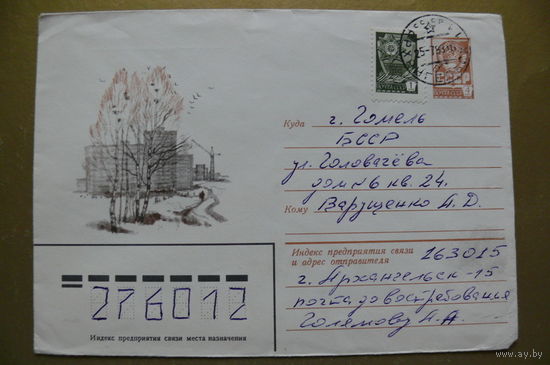 Куда г. Гомель
БССР
ул. Головачёва
дом № 6 кв. 24.
Кому Варущенко А.Д.
Индекс предприятия связи
и адрес отправителя 163015
г. Архангельск-15
почта до востребования
Голямову А.А.
276012
Индекс предприятия связи места назначения
www.ay.by